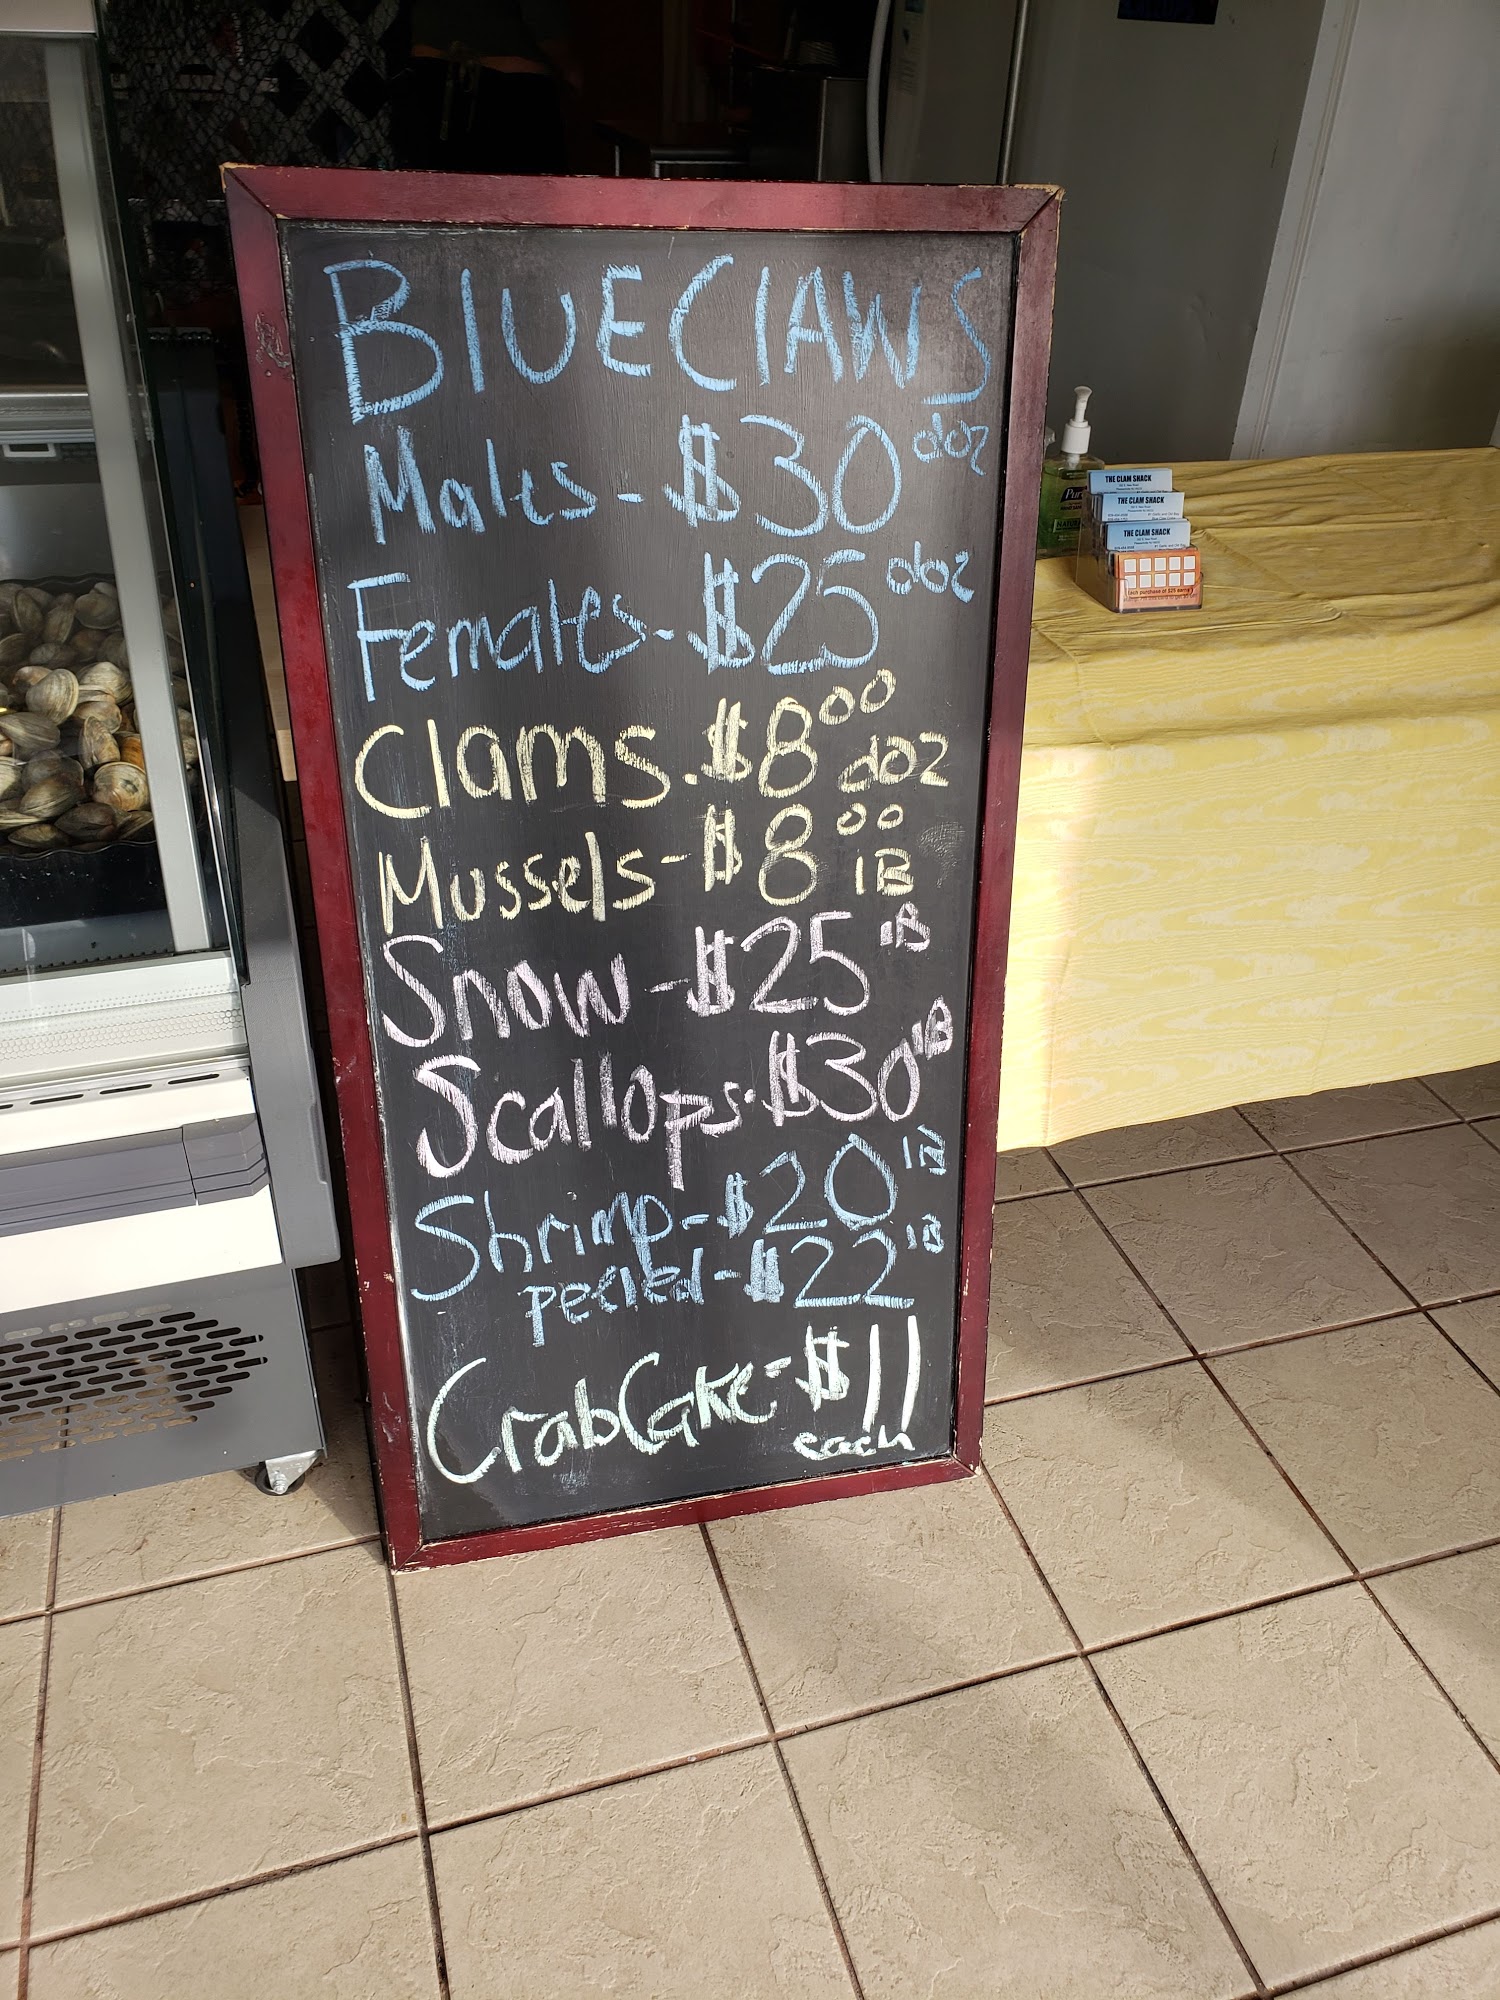 BlUECLAWS
Males - $30 doz
Females - $25 doz
Clams. $8.00 doz
Mussels - $8.00 lB
Snow - $25 lB
Scallops. $30 lB
Shrimp - $20 lB
peeled - $22 lB
CrabCake - $11
each
THE CLAM SHACK
THE CLAM SHACK
THE CLAM SHACK
each purchase of $25 earns